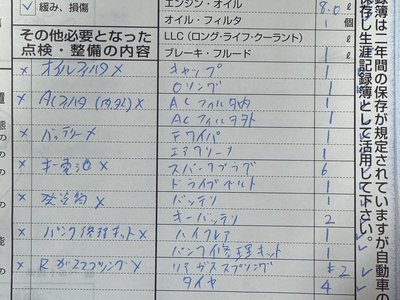 ✓ 緩み、損傷
エンジン・オイル 8.0 ℓ
オイル・フィルタ 1 個
その他必要となった
点検・整備の内容
LLC(ロング・ライフ・クーラント) ℓ
ブレーキ・フルード 1 ℓ
× オイルフィルタ ×
キャップ 1
Oリング 1
× ACフィルタ(内外) ×
ACフィルタ内 1
ACフィルタ外 1
× バッテリー ×
Fワイパ 1
エアクリーナ 1
× キー電池 ×
スパークプラグ 6
ドライブベルト 1
× 発炎筒 ×
バッテリ 1
キーバッテリ 2
× パンク修理キット ×
ハイフレア 1
パンク修理キット 1
× Rガススプリング ×
リアガススプリング 2
タイヤ 4
録簿は二年間の保存が規定されていますが自動車の
保存し生涯記録簿として活用して下さい。